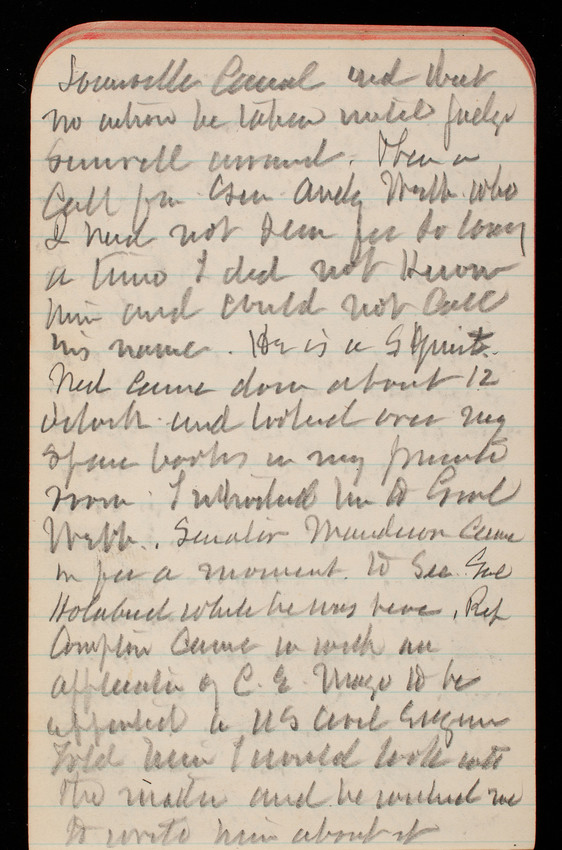 Louisville Canal and that
no action be taken until Judge
arrived. Then a
Call from Gen Andy Webb who
I had not seen for so long
a time I did not Know
him and could not call
his name. He is a
Ned came down about 12
oclock and looked over my
spare books in my private
room. I introduced him to Genl
Webb. Senator Manderson came
in for a moment. to See Gel
Holabird while he was here. Rep
Compton came in with an
application of C. E. to be
appointed a US Civil Engineer
Told him I would look into
the matter and he wished me
to write him about it